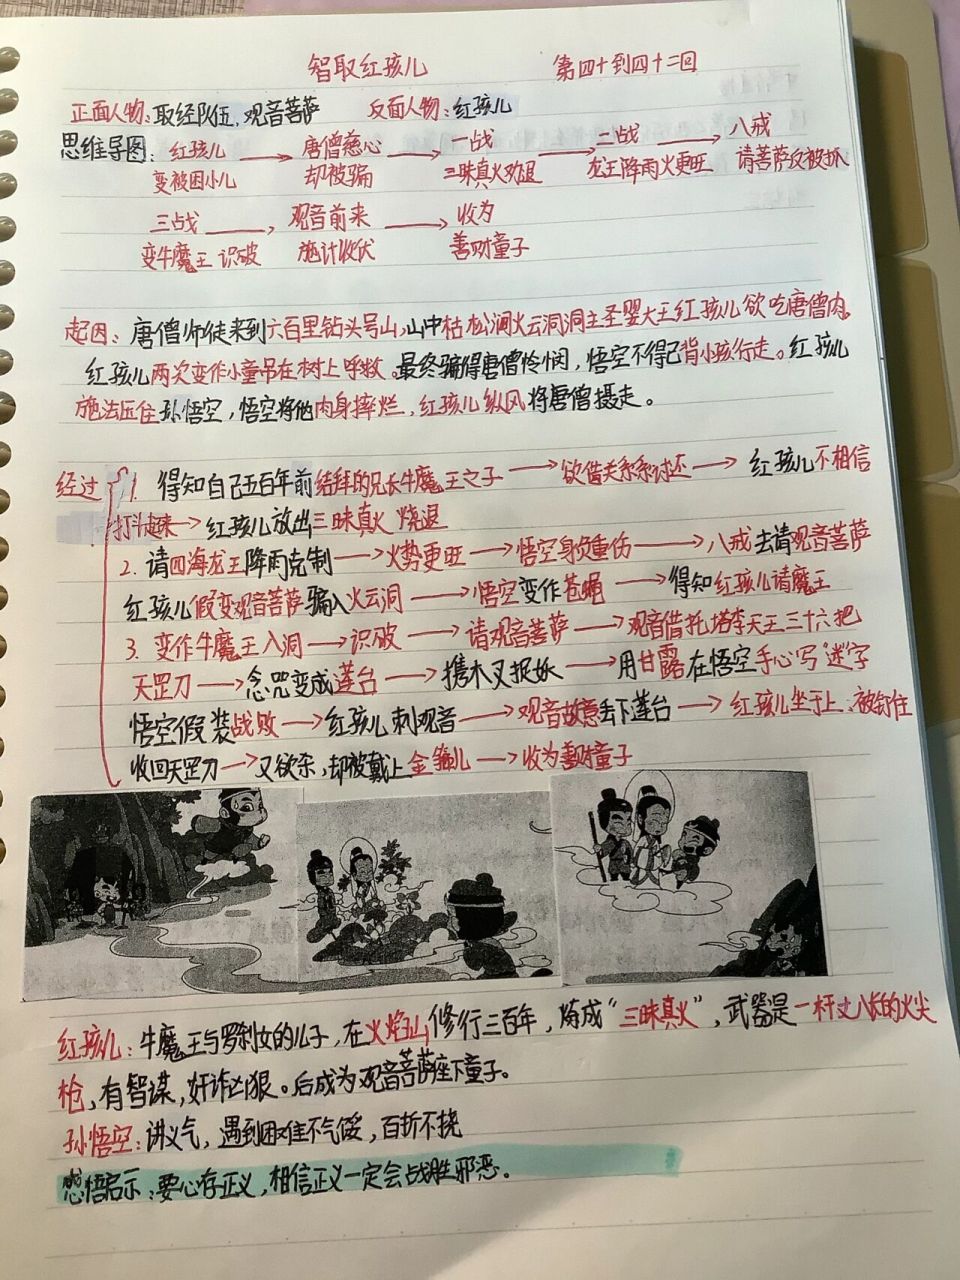 智取红孩儿 第四十到四十二回
正面人物：取经队伍、观音菩萨 反面人物：红孩儿
思维导图：红孩儿 → 唐僧慈心 → 一战 → 二战 → 八戒
变被困小儿 却被骗 三昧真火劝退 龙王降雨火更旺 请菩萨反被抓
三战 → 观音前来 → 收为
变牛魔王 识破 施计收伏 善财童子
起因：唐僧师徒来到六百里钻头号山，山中枯松涧火云洞洞主圣婴大王红孩儿欲吃唐僧肉。
红孩儿两次变作小童吊在树上呼救。最终骗得唐僧怜悯，悟空不得已背小孩行走。红孩儿
施法压住孙悟空，悟空将他肉身摔烂，红孩儿纵风将唐僧摄走。
经过 1. 得知自己五百年前结拜的兄长牛魔王之子 → 欲借关系讨还 → 红孩儿不相信
打斗起来 → 红孩儿放出三昧真火 烧退
2. 请四海龙王降雨克制 → 火势更旺 → 悟空身负重伤 → 八戒去请观音菩萨
红孩儿假变观音菩萨骗入火云洞 → 悟空变作苍蝇 → 得知红孩儿请魔王
3. 变作牛魔王入洞 → 识破 → 请观音菩萨 → 观音借托塔李天王三十六把
天罡刀 → 念咒变成莲台 → 携木叉捉妖 → 用甘露在悟空手心写“迷”字
悟空假装战败 → 红孩儿刺观音 → 观音故意丢下莲台 → 红孩儿坐于上、被钉住
收回天罡刀 → 又欲杀，却被戴上金箍儿 → 收为善财童子
红孩儿：牛魔王与罗刹女的儿子，在火焰山修行三百年，炼成“三昧真火”，武器是一杆丈八长的火尖
枪，有智谋，奸诈凶狠。后成为观音菩萨座下童子。
孙悟空：讲义气，遇到困难不气馁，百折不挠
感悟启示：要心存正义，相信正义一定会战胜邪恶。